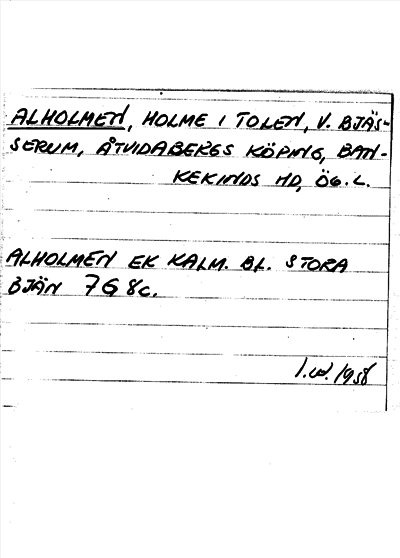 ALHOLMEN, HOLME I TOLEN, V. BJÄS-
SERUM, ÅTVIDABERGS KÖPING, BAN-
KEKINDS HD, ÖG. L.
ALHOLMEN EK KALM. BL. STORA
BJÄN 7G 8c.
I.W. 1958